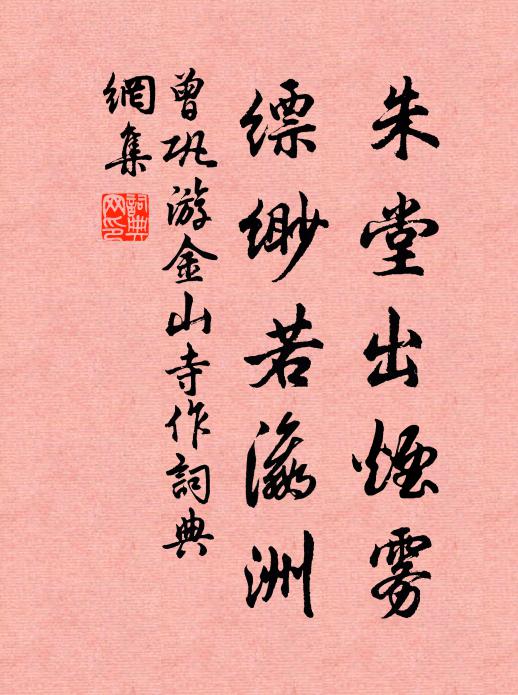 朱堂出煙雾
缥缈若瀛洲
曾巩游金山寺作詞典
網集
詞典网印